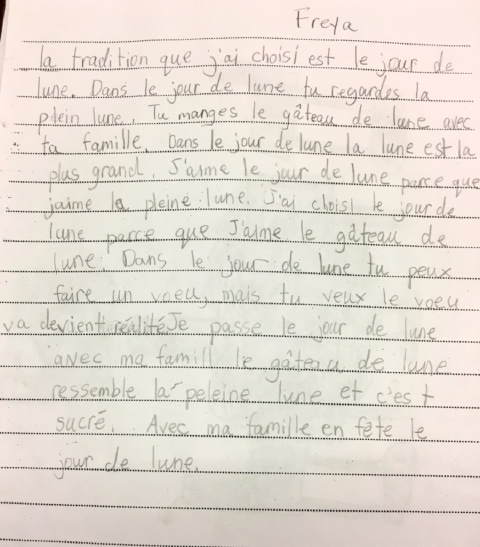 Freya
la tradition que j'ai choisi est le jour de
lune. Dans le jour de lune tu regardes la
plein lune. Tu manges le gâteau de lune avec
ta famille. Dans le jour de lune la lune est la
plus grand. J'aime le jour de lune parce que
jaime la pleine lune. J'ai choisi le jour de
lune parce que J'aime le gâteau de
lune. Dans le jour de lune tu peux
faire un voeu, mais tu veux le voeu
va devient réalité Je passe le jour de lune
avec ma famill le gâteau de lune
ressemble la peleine lune et c'est
sucré. Avec ma famille en fête le
jour de lune.